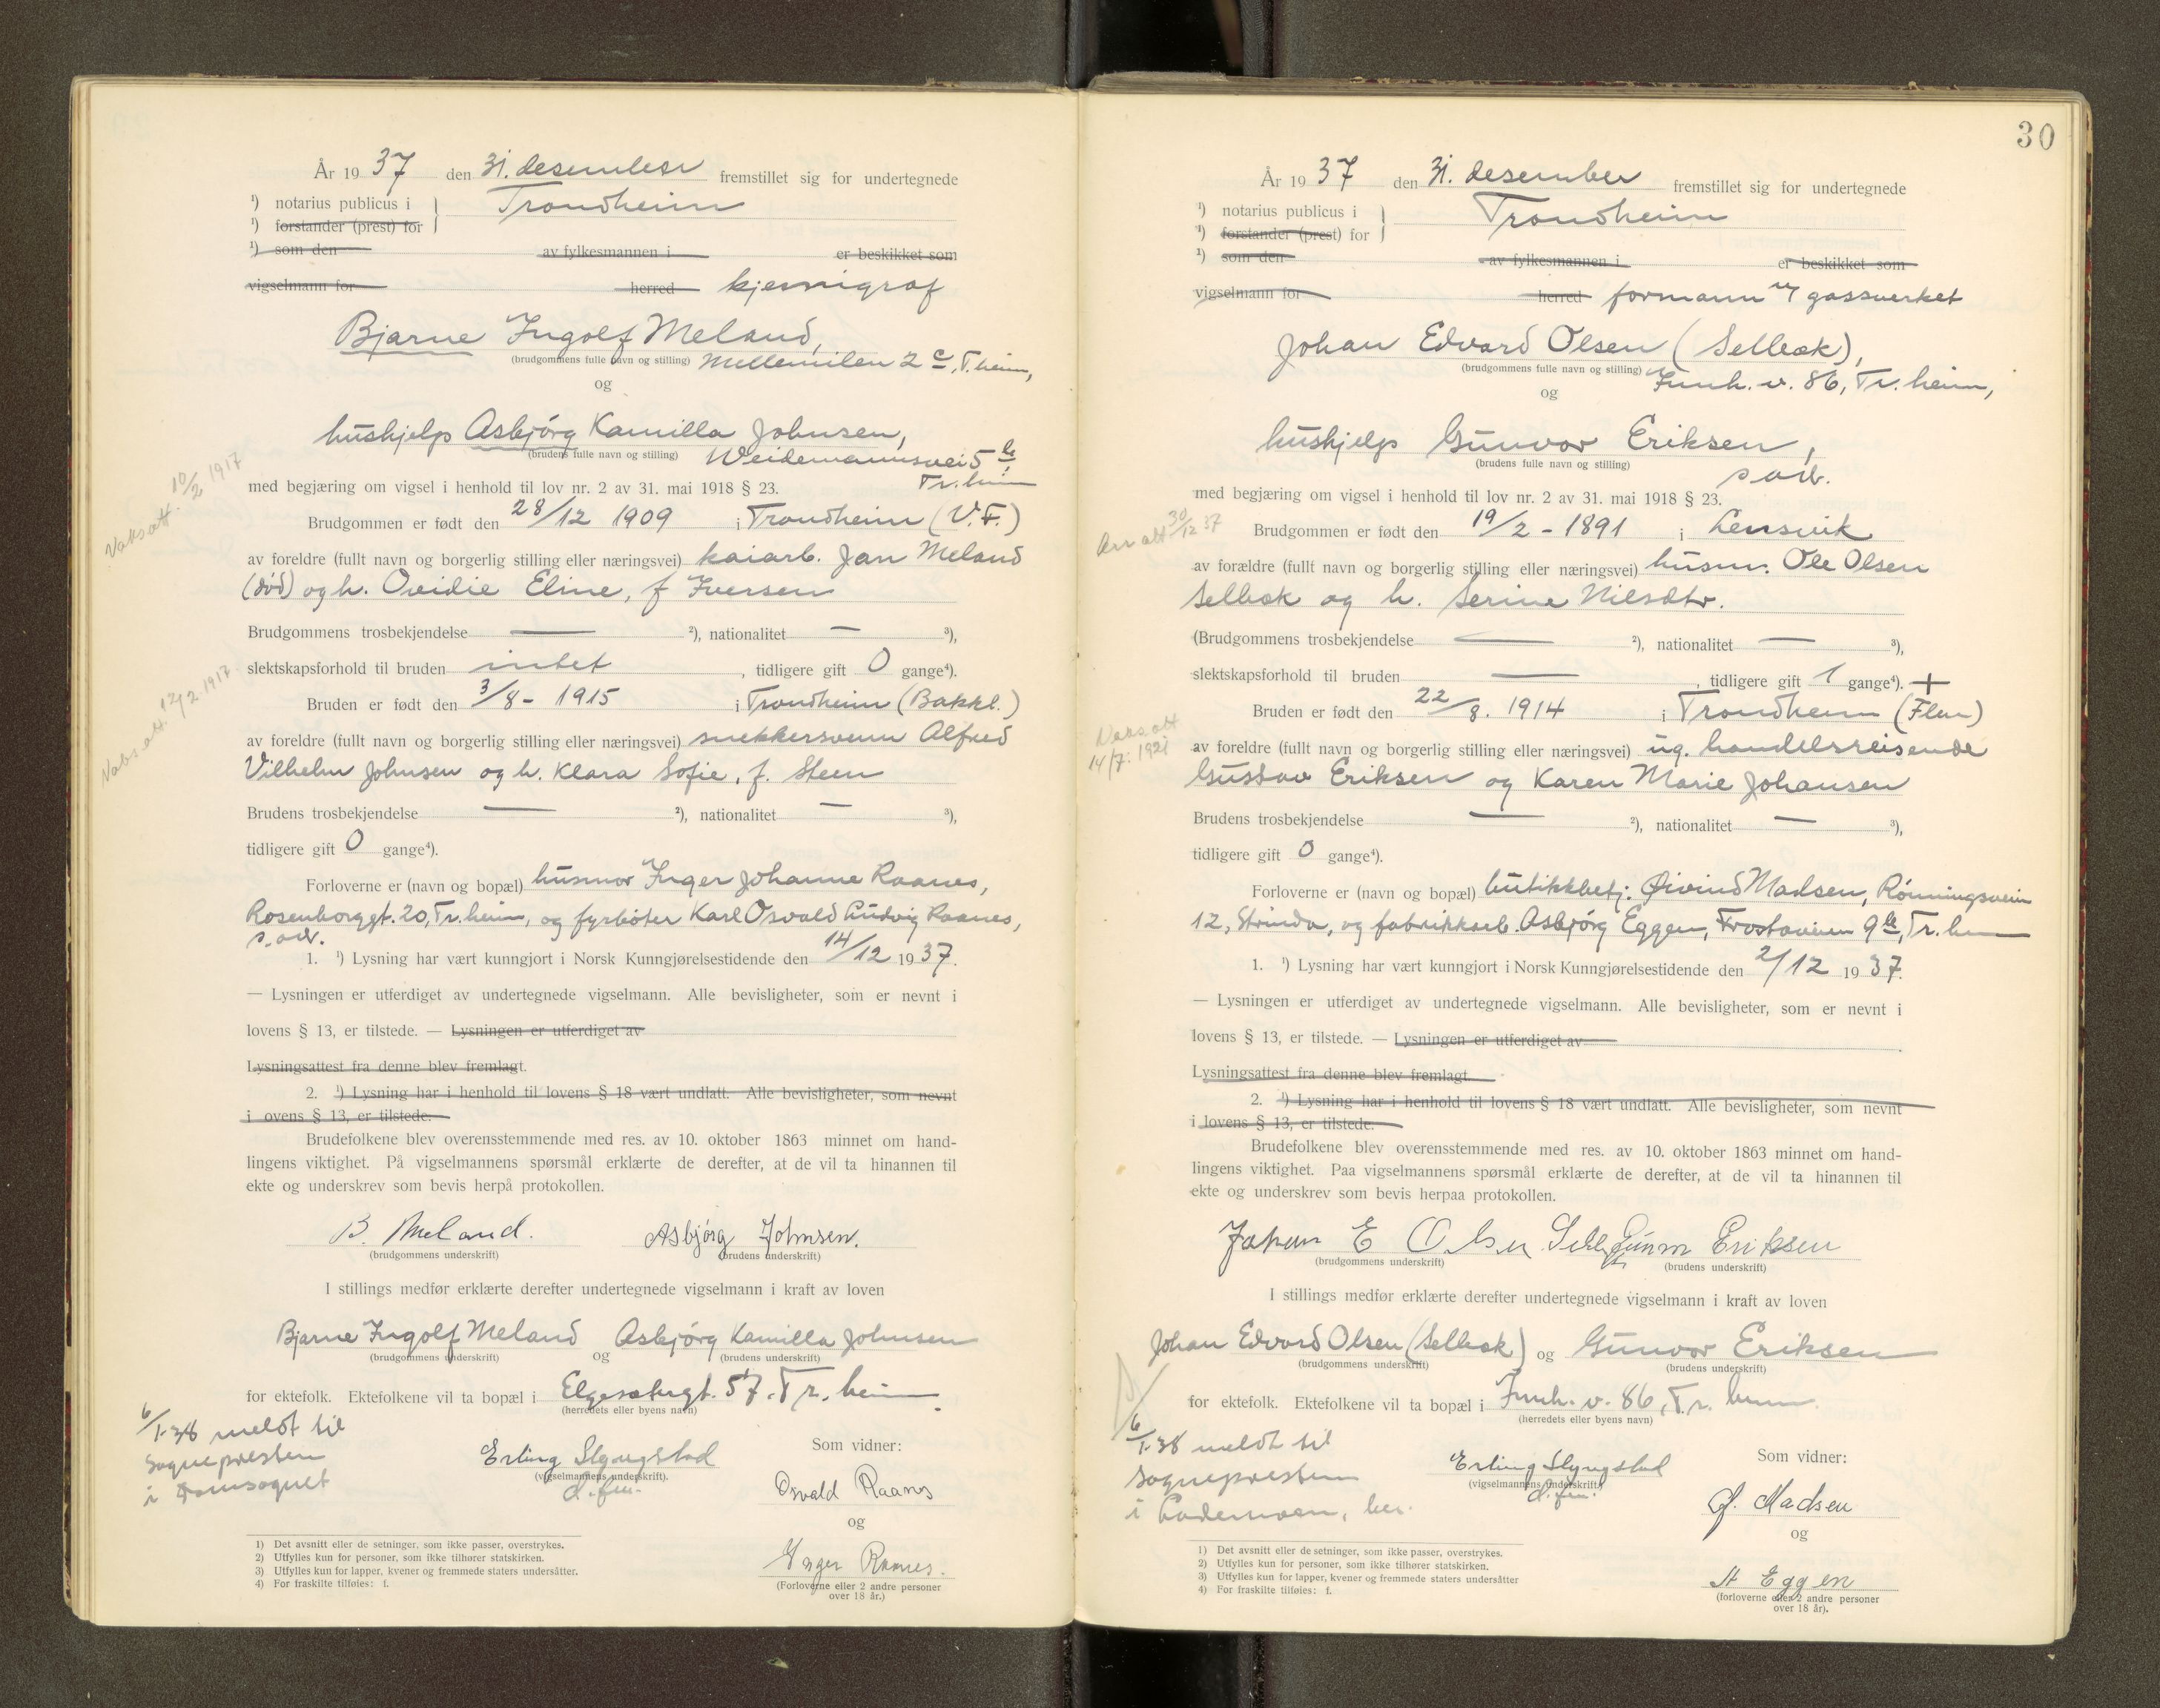 År 19 37 den 31. desember fremstillet sig for undertegnede
¹) notarius publicus i Trondheim
¹) forstander (prest) for
¹) som den av fylkesmannen i er beskikket som
vigselmann for herred kjemigraf
Bjarne Ingolf Meland,
(brudgommens fulle navn og stilling) Mellemilen 2 c, T.heim,
og
hushjelp Asbjørg Kamilla Johnsen,
(brudens fulle navn og stilling) Weidemannsvei 5 b,
Tr.heim
med begjæring om vigsel i henhold til lov nr. 2 av 31. mai 1918 § 23.
Vaksatt. 10/2 1917
Brudgommen er født den 28/12 1909 i Trondheim (V.F.)
av foreldre (fullt navn og borgerlig stilling eller næringsvei) kaiarb. Jan Meland
(død) og h. Ovidie Eline, f Iversen
Brudgommens trosbekjendelse — ²), nationalitet — ³),
slektskapsforhold til bruden intet, tidligere gift 0 gange⁴).
Vaksatt. 12/2 1917
Bruden er født den 3/8 - 1915 i Trondheim (Bakkl.)
av foreldre (fullt navn og borgerlig stilling eller næringsvei) snekkersvenn Alfred
Vilhelm Johnsen og h. Klara Sofie, f. Steen
Brudens trosbekjendelse — ²), nationalitet — ³),
tidligere gift 0 gange⁴).
Forloverne er (navn og bopæl) husmor Inger Johanne Raanes,
Rosenborggt. 20, Tr.heim, og fyrbøter Karl Osvald Ludvig Raanes,
s. adr.
1. ¹) Lysning har vært kunngjort i Norsk Kunngjørelsestidende den 14/12 19 37.
— Lysningen er utferdiget av undertegnede vigselmann. Alle bevisligheter, som er nevnt i
lovens § 13, er tilstede. — Lysningen er utferdiget av
Lysningsattest fra denne blev fremlagt.
2. ¹) Lysning har i henhold til lovens § 18 vært undlatt. Alle bevisligheter, som nevnt
i ovens § 13, er tilstede.
Brudefolkene blev overensstemmende med res. av 10. oktober 1863 minnet om hand-
lingens viktighet. På vigselmannens spørsmål erklærte de derefter, at de vil ta hinannen til
ekte og underskrev som bevis herpå protokollen.
B. Meland. Asbjørg Johnsen.
(brudgommens underskrift) (brudens underskrift)
I stillings medfør erklærte derefter undertegnede vigselmann i kraft av loven
Bjarne Ingolf Meland og Asbjørg Kamilla Johnsen
(brudgommens underskrift) (brudens underskrift)
for ektefolk. Ektefolkene vil ta bopæl i Elgesetergt. 57, Tr.heim.
(herredets eller byens navn)
6/1-38 meldt til
sognepresten
i Domsognet
Erling Slyngstad
(vigselmannens underskrift).
d. fm.
Som vidner:
Osvald Raanes
og
Inger Raanes.
(Forloverne eller 2 andre personer
over 18 år.)
1) Det avsnitt eller de setninger, som ikke passer, overstrykes.
2) Utfylles kun for personer, som ikke tilhører statskirken.
3) Utfylles kun for lapper, kvener og fremmede staters undersåtter.
4) For fraskilte tilføies: f.
30
År 19 37 den 31. desember fremstillet sig for undertegnede
¹) notarius publicus i Trondheim
¹) forstander (prest) for
¹) som den av fylkesmannen i er beskikket som
vigselmann for herred formann v/ gassverket
Johan Edvard Olsen (Selbæk),
(brudgommens fulle navn og stilling) Innh. v. 86, Tr.heim,
og
hushjelp Gunvor Eriksen,
(brudens fulle navn og stilling) s. adr.
med begjæring om vigsel i henhold til lov nr. 2 av 31. mai 1918 § 23.
30/12 37
Brudgommen er født den 19/2 - 1891 i Lensvik
av forældre (fullt navn og borgerlig stilling eller næringsvei) husm. Ole Olsen
Selbæk og h. Serine Nilsdtr.
(Brudgommens trosbekjendelse — ²), nationalitet — ³),
slektskapsforhold til bruden —, tidligere gift 1 gange⁴). +
Vaksatt
14/7. 1921
Bruden er født den 22/8. 1914 i Trondheim (Flen)
av foreldre (fullt navn og borgerlig stilling eller næringsvei) ug. handelsreisende
Gustav Eriksen og Karen Marie Johansen
Brudens trosbekjendelse — ²), nationalitet — ³),
tidligere gift 0 gange⁴).
Forloverne er (navn og bopæl) butikkbetj. Øivind Madsen, Rønningsveien
12, Strinda, og fabrikkarb. Asbjørg Eggen, Frostaveien 9 b, Tr.heim
1. ¹) Lysning har vært kunngjort i Norsk Kunngjørelsestidende den 2/12 19 37.
— Lysningen er utferdiget av undertegnede vigselmann. Alle bevisligheter, som er nevnt i
lovens § 13, er tilstede. — Lysningen er utferdiget av
Lysningsattest fra denne blev fremlagt.
2. ¹) Lysning har i henhold til lovens § 18 vært undlatt. Alle bevisligheter, som nevnt
i lovens § 13, er tilstede.
Brudefolkene blev overensstemmende med res. av 10. oktober 1863 minnet om hand-
lingens viktighet. Paa vigselmannens spørsmål erklærte de derefter, at de vil ta hinannen til
ekte og underskrev som bevis herpaa protokollen.
Johan E Olsen Selb Gunvor Eriksen
(brudgommens underskrift) (brudens underskrift)
I stillings medfør erklærte derefter undertegnede vigselmann i kraft av loven
Johan Edvard Olsen (Selbæk) og Gunvor Eriksen
(brudgommens underskrift) (brudens underskrift)
for ektefolk. Ektefolkene vil ta bopæl i Innh. v. 86, Tr.heim.
(herredets eller byens navn)
6/1-38 meldt til
sognepresten
i Lademoen, her.
Erling Slyngstad
(vigselmannens underskrift)
d. fm.
Som vidner:
Ø. Madsen
og
A Eggen
(forloverne eller 2 andre personer
over 18 år).
1) Det avsnitt eller de setninger, som ikke passer, overstrykes.
2) Utfylles kun for personer, som ikke tilhører statskirken.
3) Utfylles kun for lapper, kvener og fremmede staters undersåtter
4) For fraskilte tilføies: f.